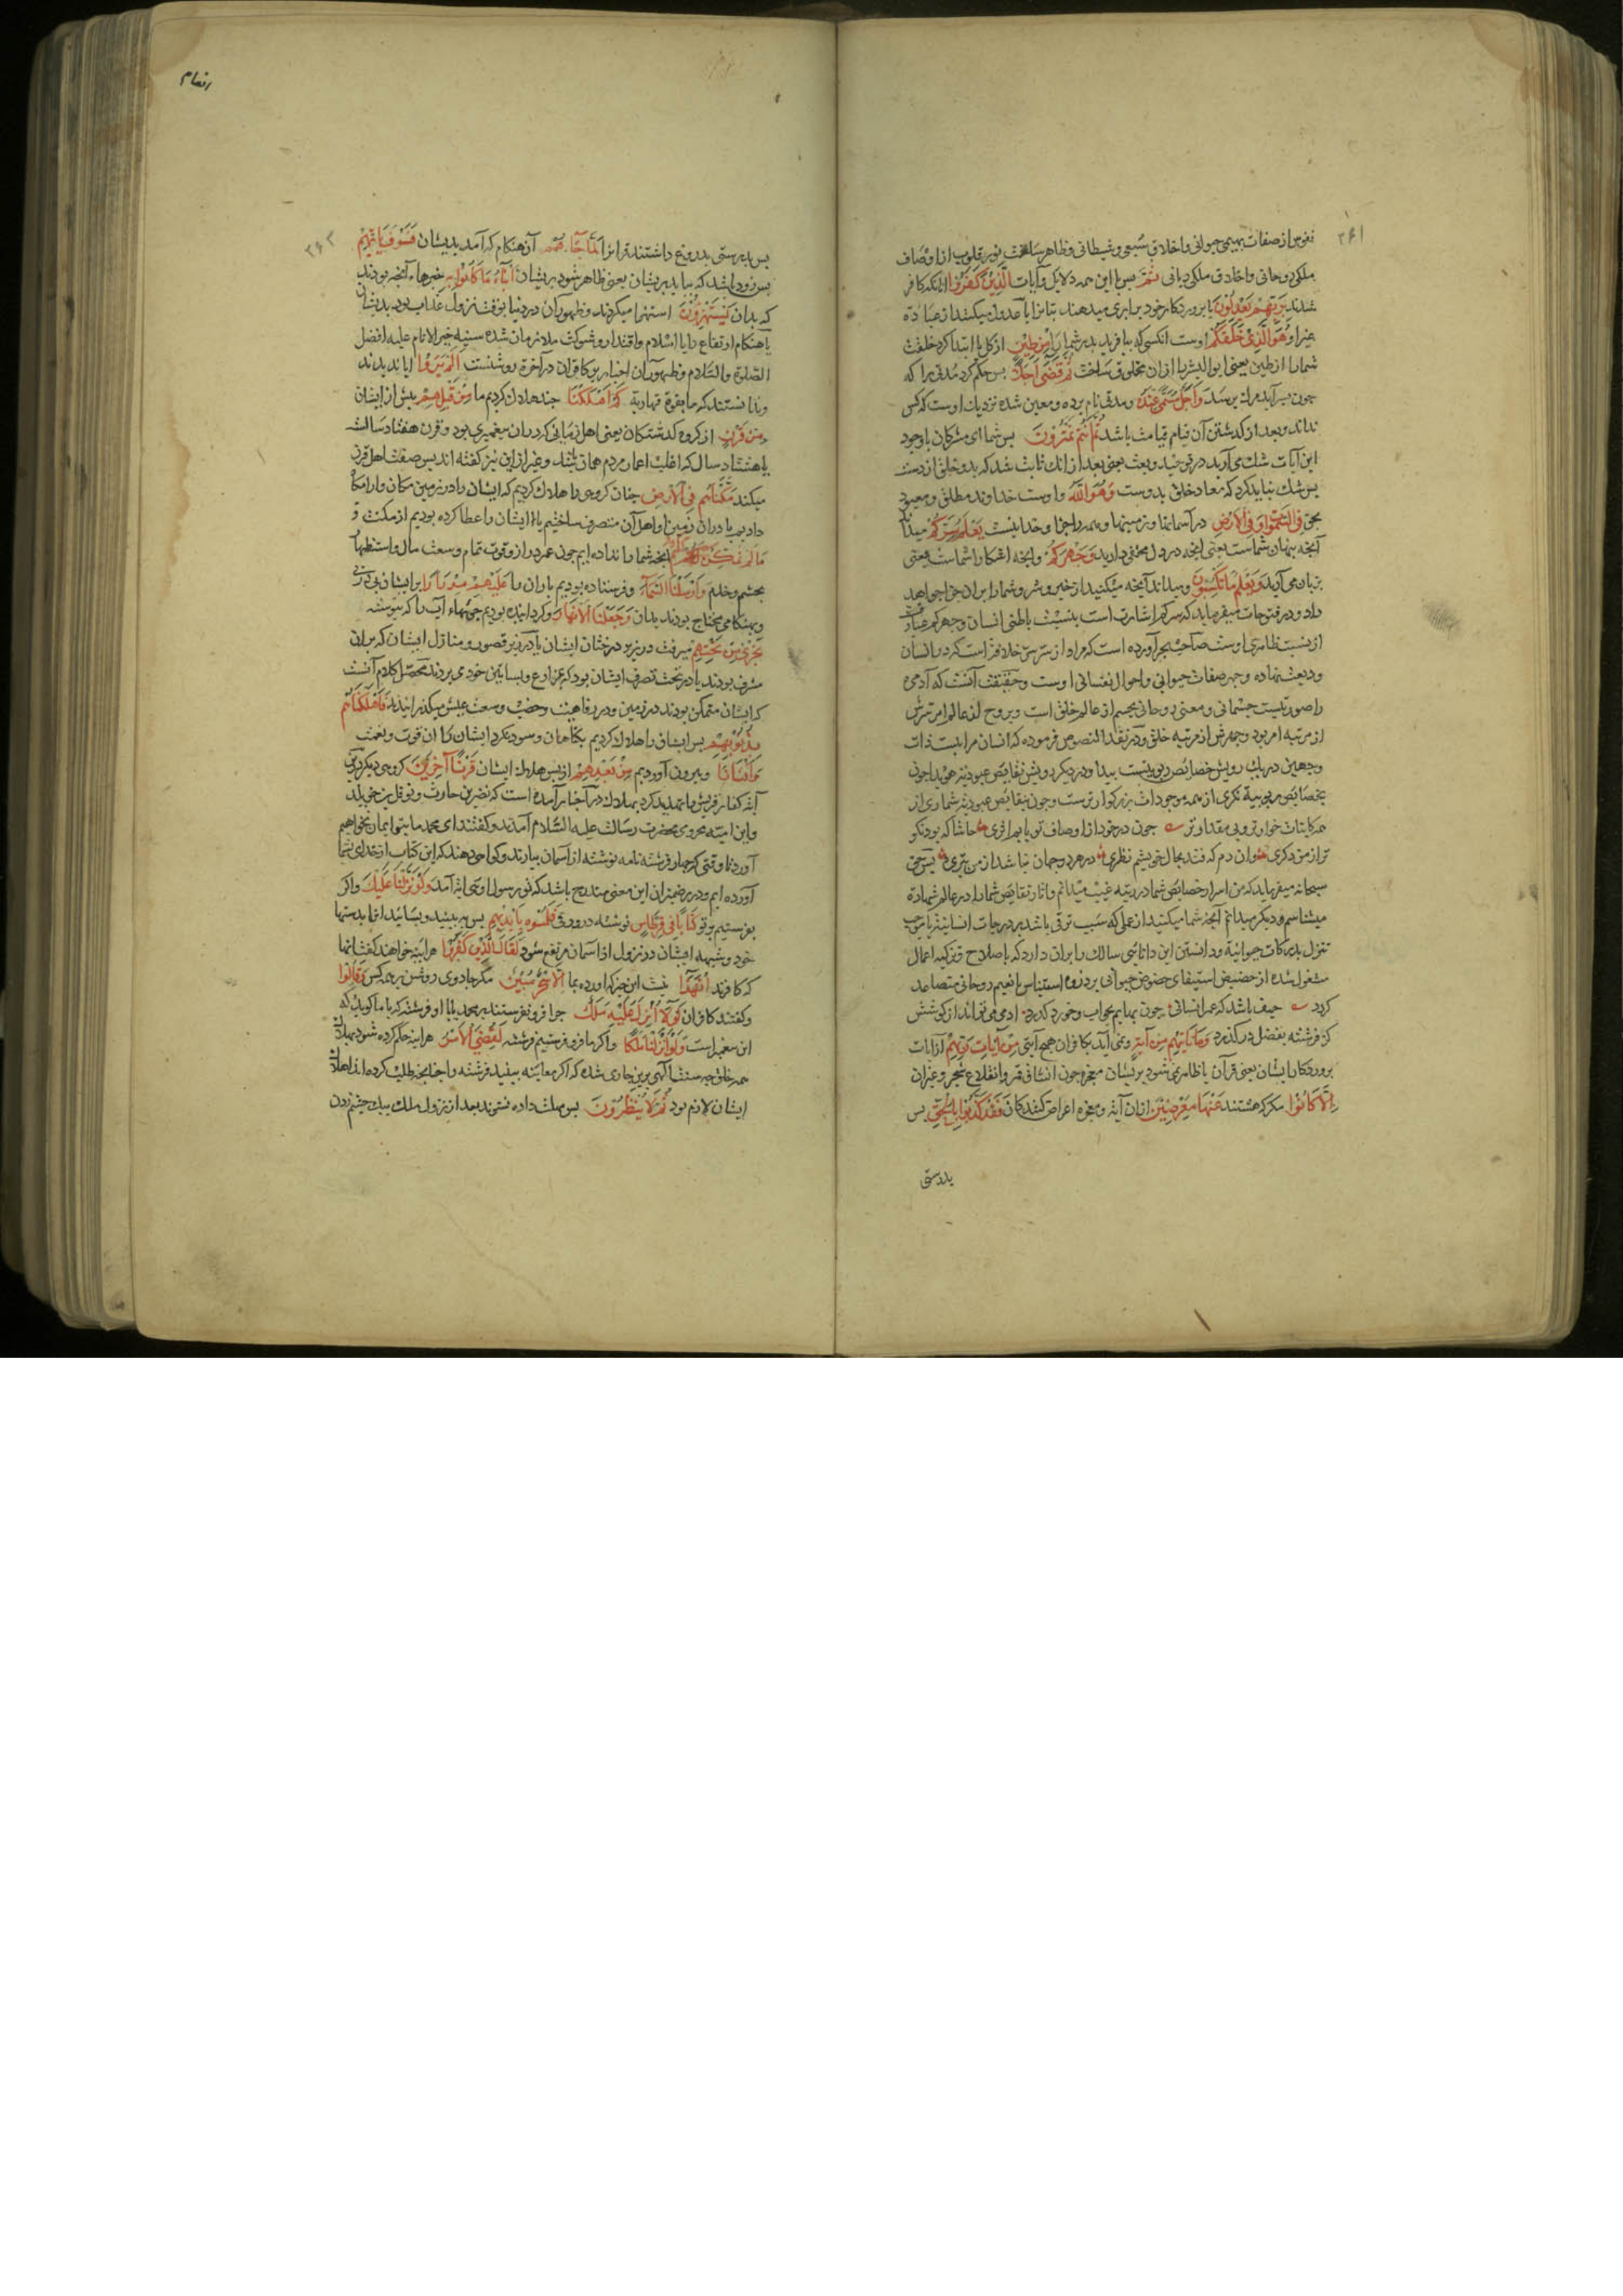 ۳۶۱
نفوس از صفات بهیمی حیوانی و اخلاق سبعی و شیطانی و ظاهر ساخت نور قلوب از اوصاف
ملکی روحانی و اخلاق ملکی ربانی ثم پس با این همه دلایل و آیات الذین کفروا آنانکه کافر
شدند بربهم یعدلون با پروردکار خود برابری میدهند بتانرا یا عدول میکنند از عبادة
غیر او هو الذی خلقکم اوست انکسی که بیافرید پدر شما را من طین از کل یا ابتدا کرد خلقت
شما را از طین یعنی ابو البشر را ازان مخلوق ساخت ثم قضی اجلا پس حکم کرد مدتی را که
چون سرآید مرک برسد و اجل مسمی عنده و مدتی نام برده و معین شده نزدیک اوست که کس
نداند و بعد از کذشتن آن قیام قیامت باشد ثم انتم تمترون پس شما ای مشرکان باوجود
این آیات شک می آرید در توحید و بعث یعنی بعد از انک ثابت شد که بدو خلق از دست
پس شک نباید کرد که معاد خلق بدوست وهو الله و اوست خداوند مطلق و معبود
بحق فی السموات و فی الارض در آسمانها و زمینها و همه را جزا و خدا نیست یعلم سرکم میداند
آنچه پنهان شماست یعنی انچه در دل مخفی دارید وجهرکم و انچه اشکارا شماست یعنی
بزبان می آرید ویعلم ما تکسبون و میداند آنچه میکنید از خیر و شر و شما را بران جزا خواهد
داد و در فتوحات میفرماید که سرکم اشارت است بنسبت باطنی انسان و جهرکم عبارت
از نسبت ظاهری اوست صاحب بحر آورده است که مراد از سر سر خلافتست که در انسان
ودیعت نهاده و جهر صفات حیوانی و احوال نفسانی اوست و حقیقت آنست که آدمی
را صورتیست جسمانی و معنی روحانی بجسم از عالم خلق است و بروح از عالم امر سرش
از مرتبه امر بود و جهرش از مرتبه خلق و در نقد النصوص فرموده که انسان مرآتیست ذات
وجهین در یک رویش خصایص ربوبیت پیدا و در دیکر رویش نقایص عبودیت هویدا چون
بخصایص ربوبیة نکری از همه موجودات بزرکوارترست و چون بنقایص عبودیت شماری از
همه کاینات خوارتر و بی مقدارتر چون در خود از اوصاف تو یابم اثری حاشا که بود نکو
تر از من دکری وان دم که فتد بحال خویشم نظری در هر دو جهان نباشد از من بتری پس حق
سبحانه میفرماید که من اسرار خصایص شما در رتبه غیب میدانم و آثار نقایص شما را در عالم شهادة
میشناسم و دیکر میدانم آنچه شما میکنید از عملی که سبب ترقی باشد بر درجات انسانیت یا موجب
تنزل بدرکات حیوانیة و دانستن این دانایی سالک را بران دارد که باصلاح و تزکیه اعمال
مشغول شده از حضیض استیفای حظوظ حیوانی بر ذروه استیناس با نعیم روحانی متصاعد
کردد حیف باشد که عمر انسانی چون بهایم بخواب و خورد کذرد ادمی می تواند از کوشش
کز فرشته بفضل درکذرد وما تاتیهم من آیة و نمی آید بکافران هیچ آیتی من آیات ربهم از آیات
پروردکار ایشان یعنی قرآن یا ظاهر نمی شود بریشان معجزه چون انشقاق قمر و انقلاع شجر و غیران
الا کانوا مکر که هستند عنها معرضین ازان آیة و معجزه اعراض کنندکان فقد کذبوا بالحق پس
بدرستی
انعام
۳۶۲
پس بدرستی بدروغ داشتند قرانرا لما جاءهم آن هنکام که آمد بدیشان فسوف یاتیهم
پس زود باشد که بیاید بریشان یعنی ظاهر شود بریشان انباء ما کانوا به خبرهاء آنچه بودند
که بدان یستهزؤن استهزا میکردند و ظهور آن در دنیا بوقت نزول عذاب بود بدیشان
یا هنکام ارتفاع رایات اسلام و اقتدار و شوکت ملازمان سده سنیه خیر الانام علیه افضل
الصلوة والسلام و ظهور آن اخبار بر کافران در آخرة روشنست الم یروا ایا ندیدند
و ندانستند که ما بقوة قهاریة کم اهلکنا چند هلاک کردیم ما من قبلهم پیش از ایشان
من قرن از کروه کذشتکان یعنی اهل زمانی که دران پیغمبری بود و قرن هفتاد سالست
یا هشتاد سال که اغلب اعمار مردم همان باشد و غیر ازین نیز کفته اند پس صفت اهل قرن
میکند مکناهم فی الارض چنان کروهی را هلاک کردیم که ایشان را در زمین مکان و آرامکاه
دادیم یا دران زمین و اهل آن متصرف ساختیم یا ایشان را عطا کرده بودیم از مکنت و
ما لم نمکن لکم انچه شما را نداده ایم چون عمر دراز و قوت تمام و وسعت مال و استظهار
بحشم و خدم وارسلنا السماء و فرستاده بودیم باران را علیهم مدرارا بر ایشان پی در پی
و بهنکامی محتاج بودند بدان وجعلنا الانهار و کردانیده بودیم جویهاء آب را که پیوسته
تجری من تحتهم میرفت در زیر درختان ایشان یا در زیر قصور و منازل ایشان که بران
مشرف بودند یا در تحت تصرف ایشان بود که بمزارع و بساتین خود می بردند محصل کلام آنست
که ایشان متمکن بودند در زمین و در رفاهیت و خصب و وسعت عیش میکذرانیدند فاهلکناهم
بذنوبهم پس ایشان را هلاک کردیم بکناهان و سود نکرد ایشان را ان قوت و نعمت
وانشانا و بیرون آوردیم من بعدهم از پس هلاک ایشان قرنا آخرین کروهی دیکر درین
آیة کفار قریش را تهدید کرد بهلاک در آخبار آمده است که نضر بن حارث و نوفل بن خویلد
و ابن امیه مخزومی بحضرت رسالت علیه السلام آمدند و کفتند ای محمد ما بتو ایمان نخواهیم
آورد تا وقتی که چهار فرشته نامه نوشته از آسمان بیارند و کواهی دهند که این کتاب از خدای بشما
آورده ایم و در ضمن ان این معنی مندرج باشد که تو رسول اویی ایة آمد ولو نزلنا علیک و اکر
بفرستیم بر تو کتابا فی قرطاس نوشته در ورقی فلمسوه بایدیهم پس به بینند و بسایند انرا بدستها
خود و شبهه ایشان در نزول از آسمان مرتفع شود لقال الذین کفروا هراینه خواهند کفت انها
که کافرند ان هذا نیست این چیز که اورده بما الا سحر مبین مکر جادوی روشن بر همه کس وقالوا
و کفتند کافران لولا انزل علیه ملک چرا فرو نفرستند بر محمد یا با او فرشته که با ما کوید که
این پیغمبر است ولو انزلنا ملکا و اکر ما فرو فرستیم فرشته لقضی الامر هراینه حکم کرده شود بهلاک
همه خلق چه سنت الهی برین جاری شده که اکر معاینه ببینند فرشته را چنانچه طلب کرده اند اهلاک
ایشان لازم بود ثم لا ینظرون پس مهلت داده نشوند بعد از نزول ملک بیک چشم زدن